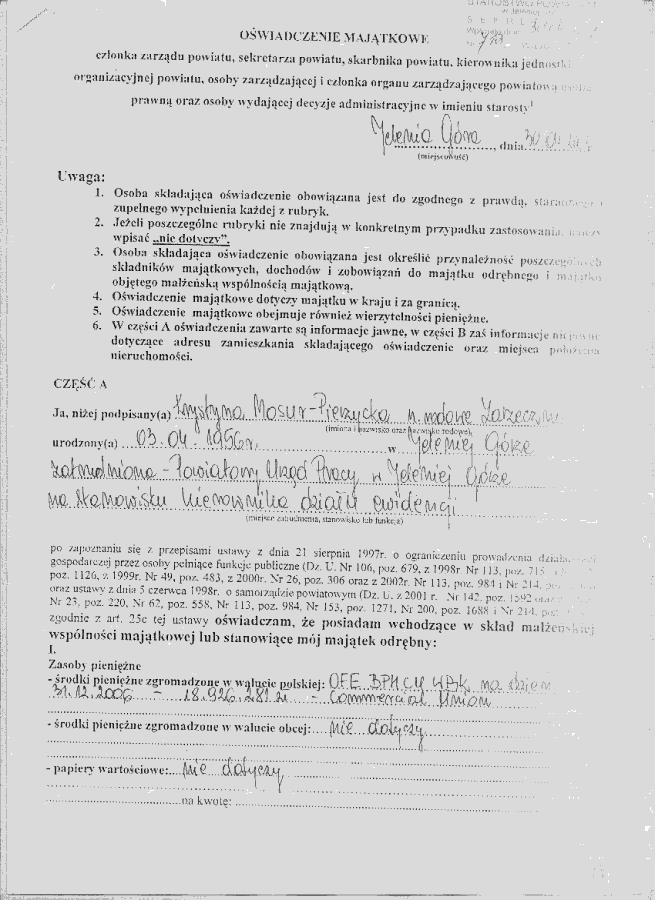 STAROSTWO POWIATOWE
OŚWIADCZENIE MAJĄTKOWE
członka zarządu powiatu, sekretarza powiatu, skarbnika powiatu, kierownika jednostki
organizacyjnej powiatu, osoby zarządzającej i członka organu zarządzającego powiatową osobą
prawną oraz osoby wydającej decyzje administracyjne w imieniu starosty¹
Jelenia Góra, dnia 30.
(miejscowość)
Uwaga:
1. Osoba składająca oświadczenie obowiązana jest do zgodnego z prawdą, starannego i
zupełnego wypełnienia każdej z rubryk.
2. Jeżeli poszczególne rubryki nie znajdują w konkretnym przypadku zastosowania, należy
wpisać „nie dotyczy".
3. Osoba składająca oświadczenie obowiązana jest określić przynależność poszczególnych
składników majątkowych, dochodów i zobowiązań do majątku odrębnego i majątku
objętego małżeńską wspólnością majątkową.
4. Oświadczenie majątkowe dotyczy majątku w kraju i za granicą.
5. Oświadczenie majątkowe obejmuje również wierzytelności pieniężne.
6. W części A oświadczenia zawarte są informacje jawne, w części B zaś informacje niejawne
dotyczące adresu zamieszkania składającego oświadczenie oraz miejsca położenia
nieruchomości.
CZĘŚĆ A
Ja, niżej podpisany(a) Krystyna Mosur-Pierzycka
(imiona i nazwisko oraz nazwisko rodowe)
urodzony(a) 03.04.1956r. w Jeleniej Górze
zatrudniona - Powiatowy Urząd Pracy w Jeleniej Górze
na stanowisku kierownika działu ewidencji
(miejsce zatrudnienia, stanowisko lub funkcja)
po zapoznaniu się z przepisami ustawy z dnia 21 sierpnia 1997r. o ograniczeniu prowadzenia działalności
gospodarczej przez osoby pełniące funkcje publiczne (Dz. U. Nr 106, poz. 679, z 1998r. Nr 113, poz. 715
poz. 1126, z 1999r. Nr 49, poz. 483, z 2000r. Nr 26, poz. 306 oraz z 2002r. Nr 113, poz. 984 i Nr 214, poz.
oraz ustawy z dnia 5 czerwca 1998r. o samorządzie powiatowym (Dz. U. z 2001 r. Nr 142, poz. 1592 oraz
Nr 23, poz. 220, Nr 62, poz. 558, Nr 113, poz. 984, Nr 153, poz. 1271, Nr 200, poz. 1688 i Nr 214, poz.
zgodnie z art. 25c tej ustawy oświadczam, że posiadam wchodzące w skład małżeńskiej
wspólności majątkowej lub stanowiące mój majątek odrębny:
I.
Zasoby pieniężne
- środki pieniężne zgromadzone w walucie polskiej: OFE BPH CU WBK na dzień
31.12.2006 - 18.926,281 zł - Commercial Union
- środki pieniężne zgromadzone w walucie obcej: nie dotyczy
- papiery wartościowe: nie dotyczy
na kwotę: